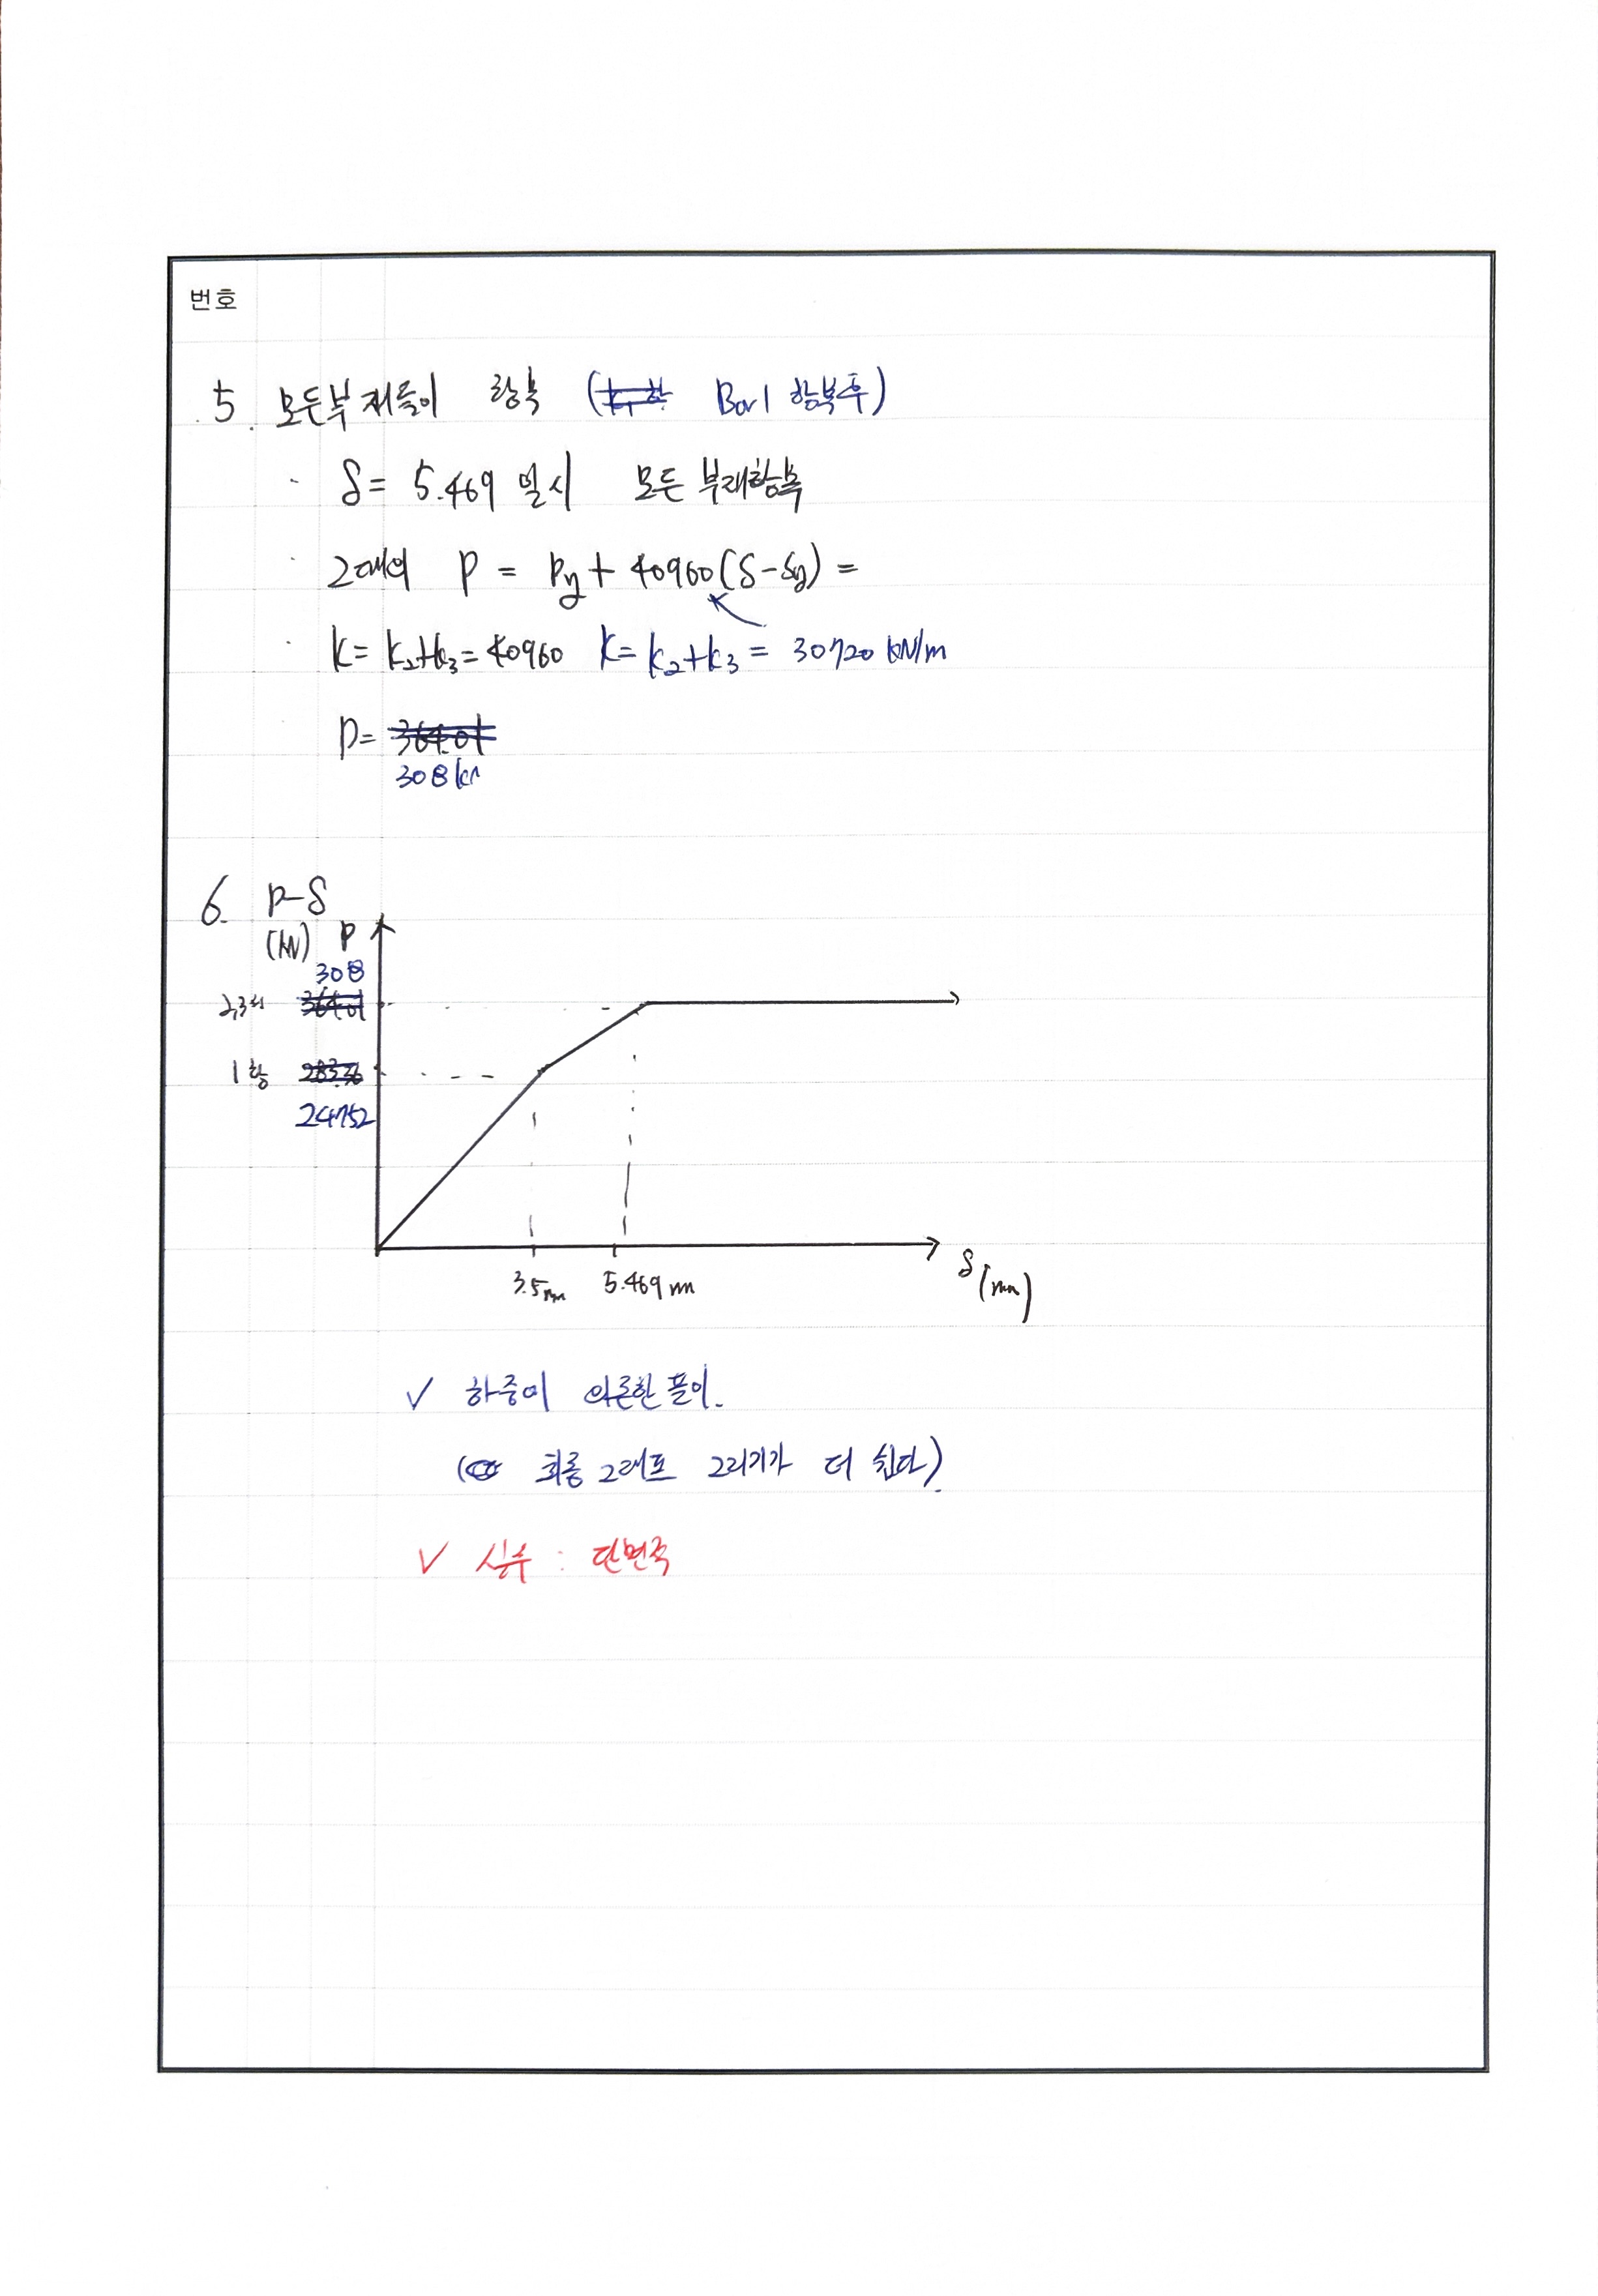 번호
5. 모든부재들이 항복 (Bar1 항복후)
· δ= 5.469 일시 모든 부재항복
· 2대의 P = Py + 40960(δ-δy) =
· k= k2+k3= 40960 k= k2+k3 = 30720 kN/m
P= 364.01
308 kN
6. P-δ
(kN) P
308
2,3항 364.01
1항 283.36
247.52
3.5mm 5.469 mm
δ (mm)
✓ 하중에 의존한 풀이.
(최종 그래프 그리기가 더 쉽다).
✓ 실수 : 단면적